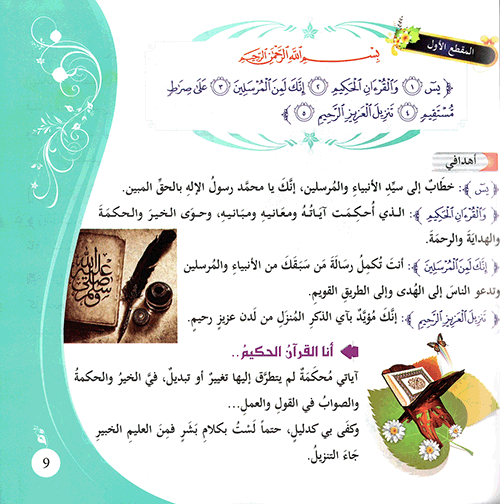 المقطع الأول
بِسْمِ اللَّهِ الرَّحْمَٰنِ الرَّحِيمِ
﴿ يسٓ ۝١ وَالْقُرْءَانِ الْحَكِيمِ ۝٢ إِنَّكَ لَمِنَ الْمُرْسَلِينَ ۝٣ عَلَىٰ صِرَٰطٍ
مُّسْتَقِيمٍ ۝٤ تَنزِيلَ الْعَزِيزِ الرَّحِيمِ ۝٥ ﴾
أهدافي
﴿ يسٓ ﴾: خطابٌ إلى سيِّدِ الأنبياءِ والمُرسلين، إنَّكَ يا محمَّد رسولُ الإلهِ بالحقِّ المبين.
﴿ وَالْقُرْءَانِ الْحَكِيمِ ﴾: الـذي أُحكِـمَت آيَـاتُـهُ ومعَانيـهِ ومبَانيـهِ، وحـوَى الخيـرَ والحكمـةَ
والهدايَةَ والرحمَةَ.
﴿ إِنَّكَ لَمِنَ الْمُرْسَلِينَ ﴾: أنتَ تُكمِلُ رسالَةَ مَن سَبَقَكَ من الأنبياءِ والمُرسلين
وتدعو الناسَ إلى الهُدى وإلى الطريقِ القويمِ.
﴿ تَنزِيلَ الْعَزِيزِ الرَّحِيمِ ﴾: إنَّكَ مُؤيَّدٌ بآي الذكرِ المُنزَلِ من لَدن عزيزٍ رحيمٍ.
أنا القرآنُ الحكيمُ..
آياتي مُحكَمَةٌ لم يتطرَّق إليها تغييرٌ أو تبديلٌ، فيَّ الخيرُ والحكمةُ
والصوابُ في القولِ والعملِ...
وكفَى بي كدليلٍ، حتماً لَسْتُ بكلامِ بَشَرٍ فمِنَ العليمِ الخبيرِ
جَاءَ التنزيلُ.
9